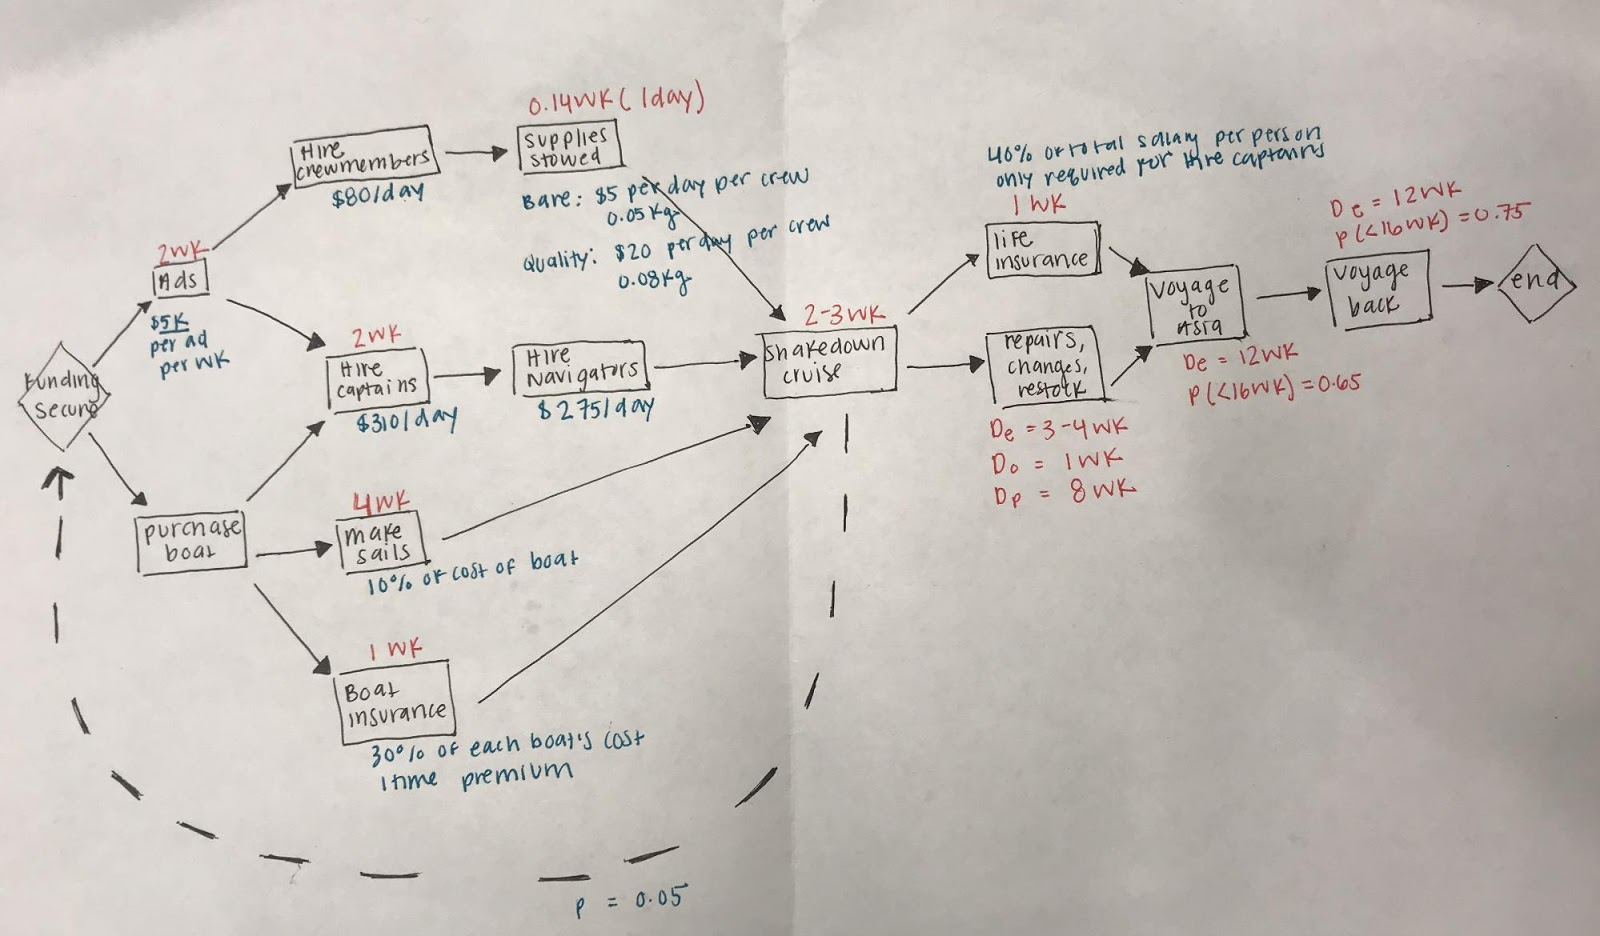 Funding
secure
2WK
Ads
$5K
per ad
per WK
Hire
crewmembers
$80/day
0.14WK (1day)
supplies
stowed
Bare: $5 per day per crew
0.05Kg
Quality: $20 per day per crew
0.08Kg
2WK
Hire
captains
$310/day
Hire
Navigators
$275/day
purchase
boat
4WK
make
sails
10% of cost of boat
1 WK
Boat
insurance
30% of each boat's cost
1 time premium
2-3WK
shakedown
cruise
p = 0.05
40% of total salary per person
only required for Hire captains
1 WK
life
insurance
repairs,
changes,
restock
De = 3-4WK
Do = 1WK
Dp = 8WK
voyage
to
Asia
De = 12WK
p(<16WK) = 0.65
De = 12WK
p(<16WK) = 0.75
voyage
back
end